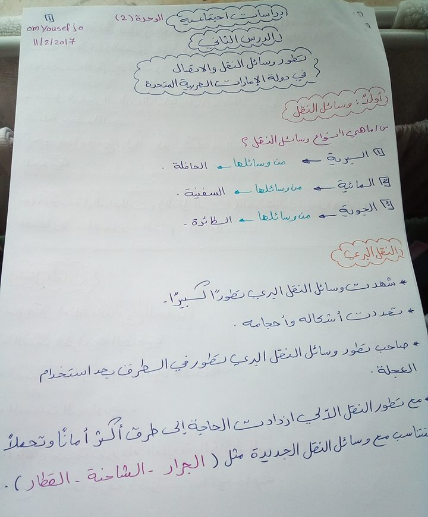 دراسات اجتماعية الوحدة (2)
1
omyousef jo
11/2/2017
الدرس الثاني
تطور وسائل النقل والاتصال
في دولة الإمارات العربية المتحدة
أولاً: وسائل النقل
س1 ماهي أنواع وسائل النقل ؟
1 البرية ← من وسائلها ← الحافلة .
2 المائية ← من وسائلها ← السفينة .
3 الجوية ← من وسائلها ← الطائرة .
النقل البري
* شهدت وسائل النقل البري تطوراً كبيراً .
* تعددت أشكاله وأحجامه .
* صاحب تطور وسائل النقل البري تطور في الطرق بعد استخدام
العجلة .
* مع تطور النقل الآلي ازدادت الحاجة إلى طرق أكثر أماناً وتحملاً
تتناسب مع وسائل النقل الجديدة مثل ( الجرار - الشاحنة - القطار ) .